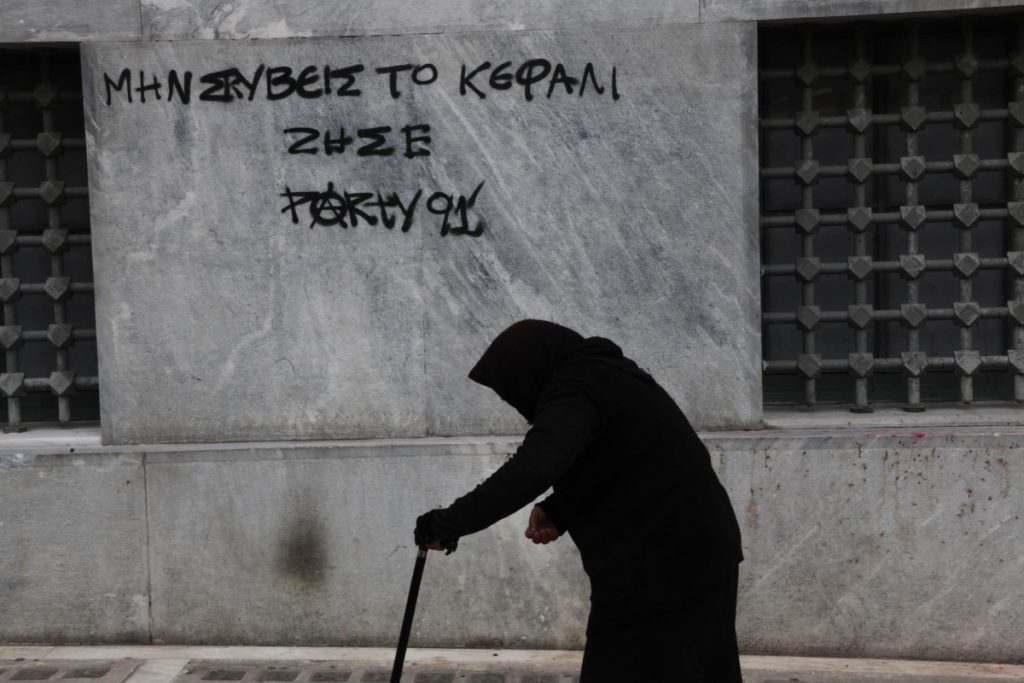 ΜΗΝ ΣΚΥΒΕΙΣ ΤΟ ΚΕΦΑΛΙ
ΖΗΣΕ
PARTY 91